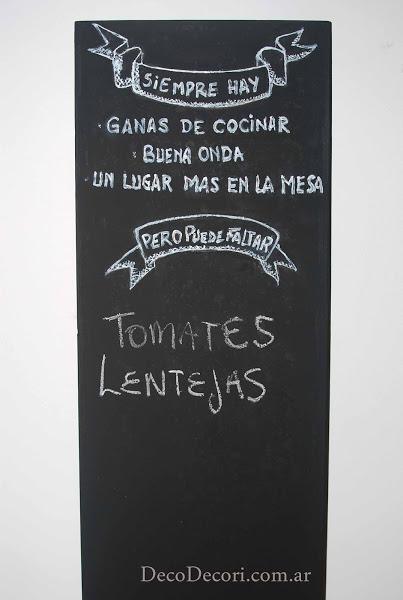 SiEMPRE HAY
· GANAS DE COCiNAR
· BUENA ONDA
· UN LUGAR MAS EN LA MESA
PERO PUEDEN FALTAR
TOMATES
LENTEJAS
DecoDecori.com.ar